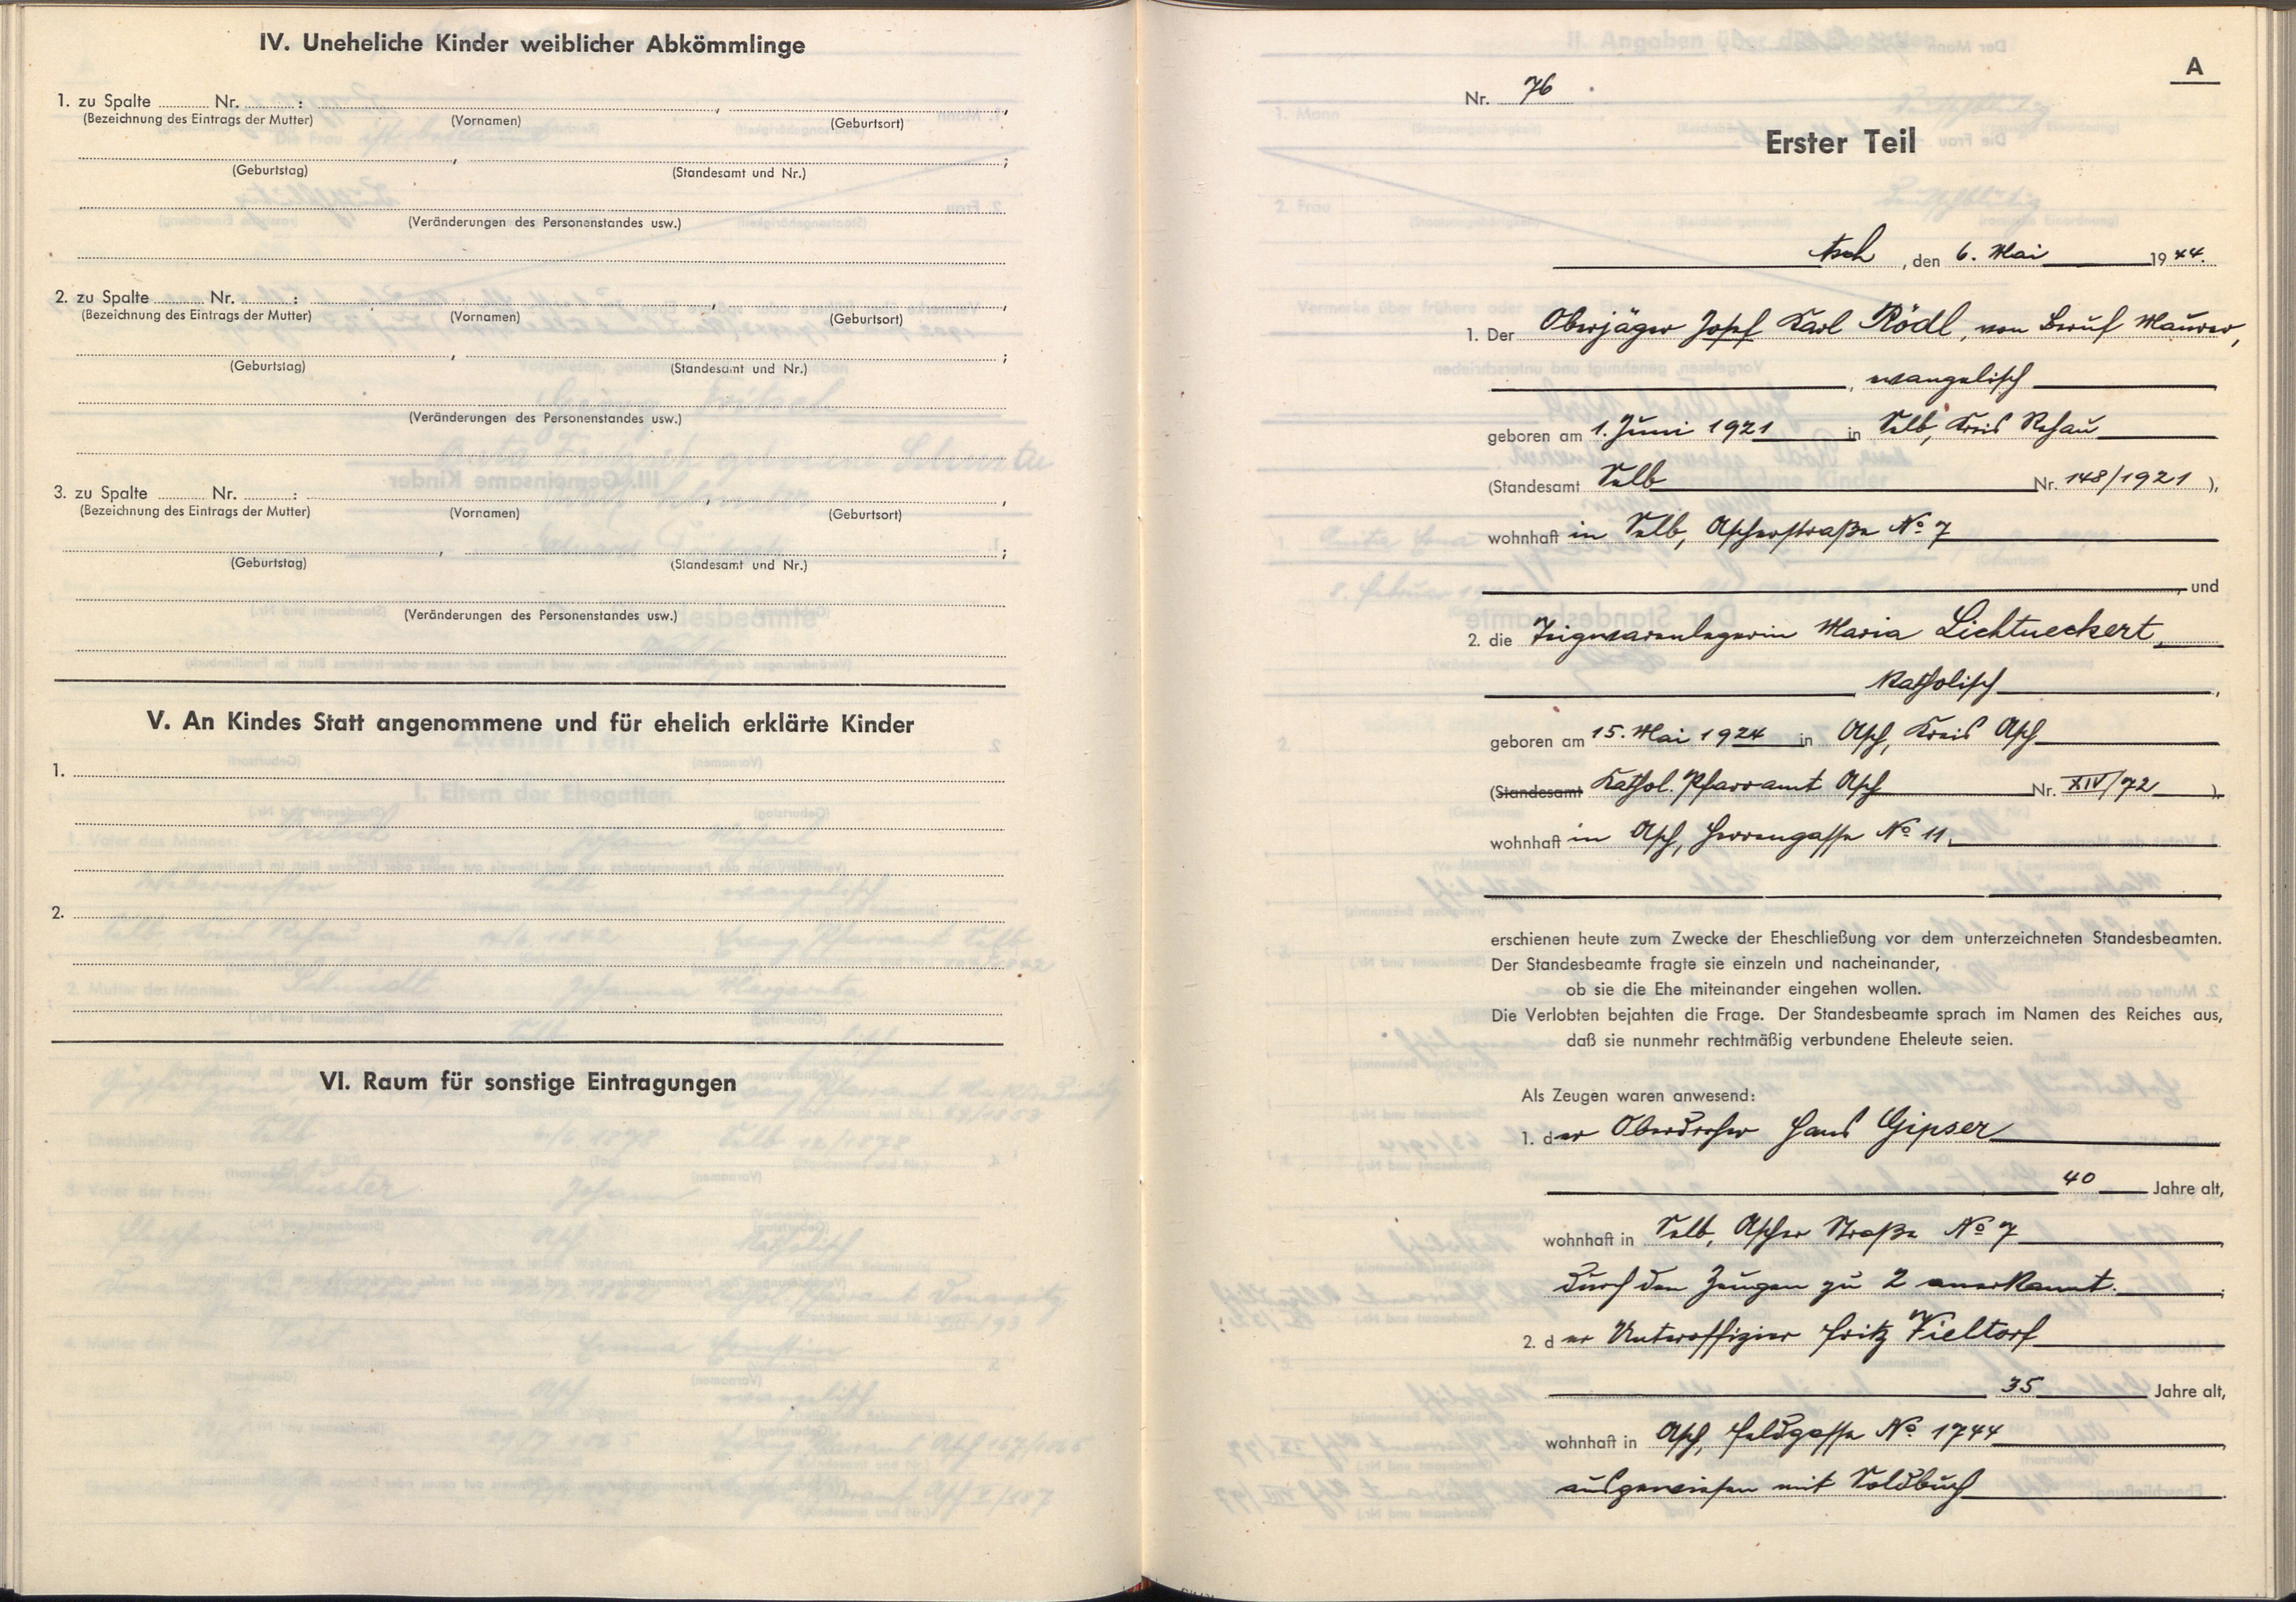 IV. Uneheliche Kinder weiblicher Abkömmlinge
1. zu Spalte ........ Nr. ........ :
(Bezeichnung des Eintrags der Mutter) (Vornamen) (Geburtsort)
(Geburtstag) (Standesamt und Nr.)
(Veränderungen des Personenstandes usw.)
2. zu Spalte ........ Nr. ........ :
(Bezeichnung des Eintrags der Mutter) (Vornamen) (Geburtsort)
(Geburtstag) (Standesamt und Nr.)
(Veränderungen des Personenstandes usw.)
3. zu Spalte ........ Nr. ........ :
(Bezeichnung des Eintrags der Mutter) (Vornamen) (Geburtsort)
(Geburtstag) (Standesamt und Nr.)
(Veränderungen des Personenstandes usw.)
V. An Kindes Statt angenommene und für ehelich erklärte Kinder
1.
2.
VI. Raum für sonstige Eintragungen
A
Nr. 76
Erster Teil
Asch, den 6. Mai 1944.
1. Der Oberjäger Josef Karl Rödl, von Beruf Maurer,
, evangelisch
geboren am 1. Juni 1921 in Selb, Kreis Rehau
(Standesamt Selb Nr. 148/1921 ),
wohnhaft in Selb, Ascherstraße No 7
, und
2. die Maria Lichtneckert,
, katholisch,
geboren am 15. Mai 1924 in Asch, Kreis Asch
(Standesamt Kathol. Pfarramt Asch Nr. XIV/72 ),
wohnhaft in Asch, Herrengasse No 11.
erschienen heute zum Zwecke der Eheschließung vor dem unterzeichneten Standesbeamten.
Der Standesbeamte fragte sie einzeln und nacheinander,
ob sie die Ehe miteinander eingehen wollen.
Die Verlobten bejahten die Frage. Der Standesbeamte sprach im Namen des Reiches aus,
daß sie nunmehr rechtmäßig verbundene Eheleute seien.
Als Zeugen waren anwesend:
1. der Oberdreher Hans Gipser
40 Jahre alt,
wohnhaft in Selb, Ascher Straße No 7
durch den Zeugen zu 2 anerkannt.
2. der Unteroffizier Fritz Vieltorf
35 Jahre alt,
wohnhaft in Asch, Feldgasse No 1744
ausgewiesen mit Soldbuch